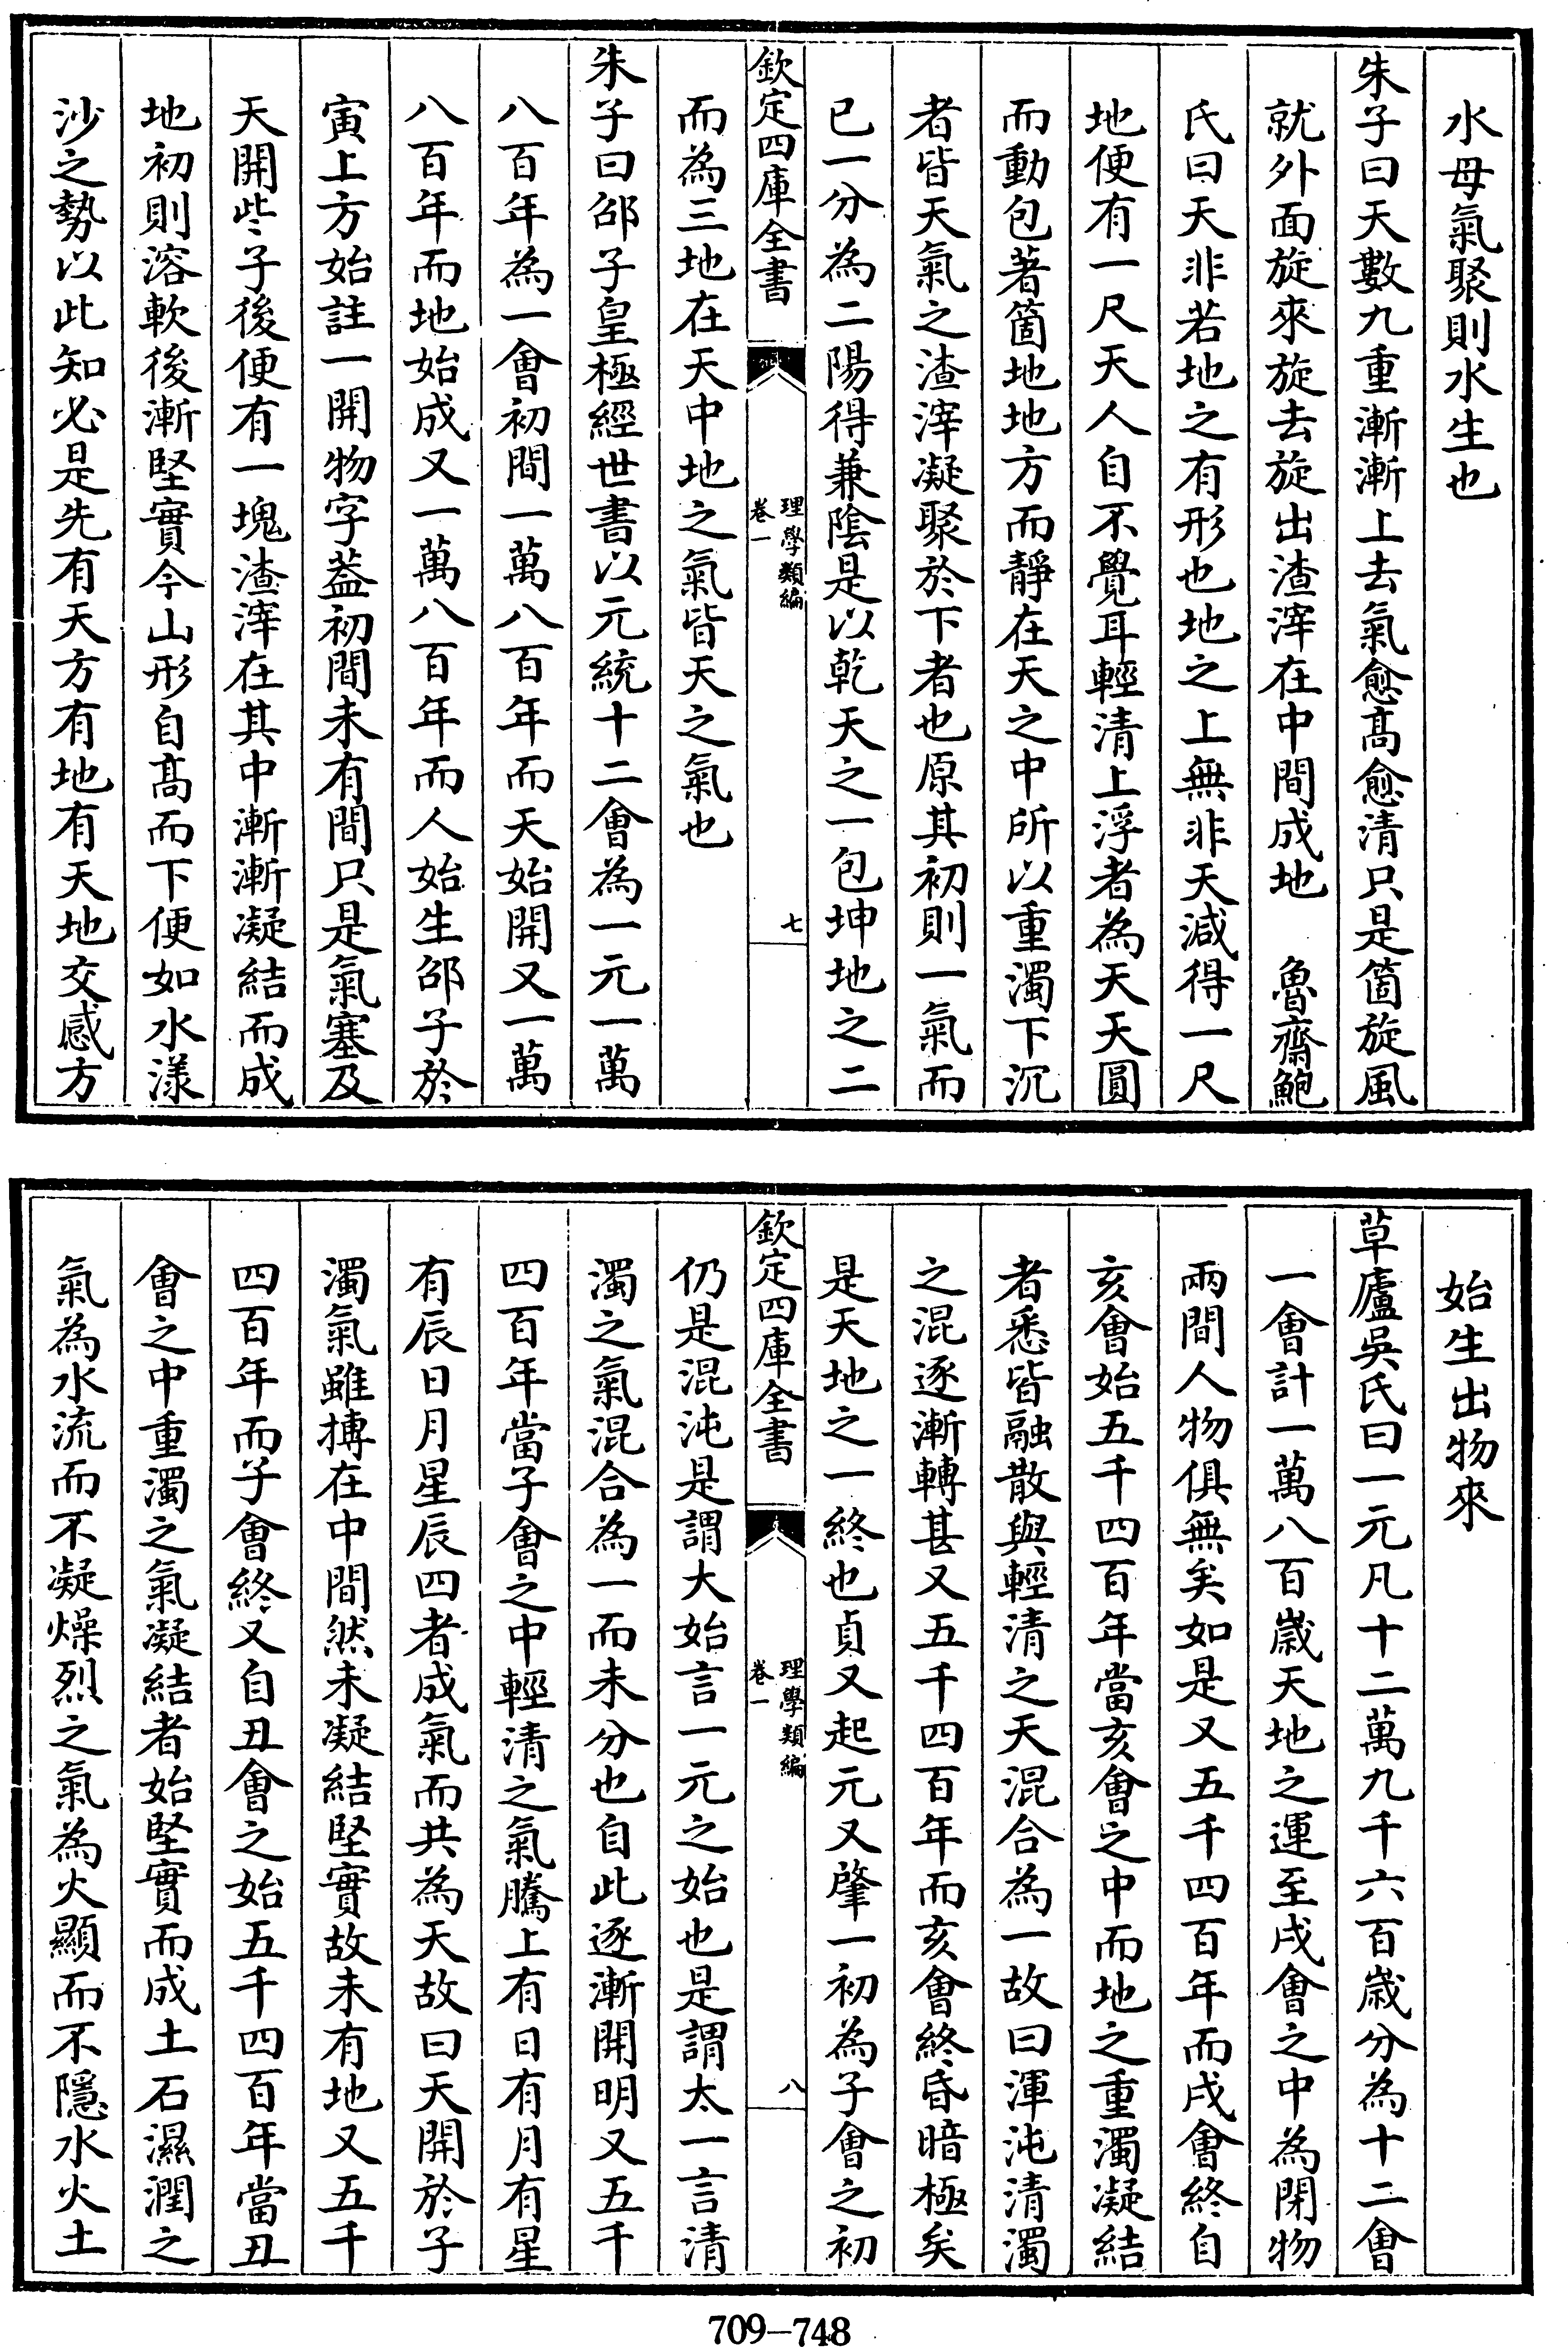 水母氣聚則水生也
朱子曰天數九重漸漸上去氣愈髙愈清只是箇旋風
就外面旋來旋去旋出渣滓在中間成地　魯齋鮑
氏曰天非若地之有形也地之上無非天減得一尺
地便有一尺天人自不覺耳輕清上浮者為天天圓
而動包著箇地地方而靜在天之中所以重濁下沉
者皆天氣之渣滓凝聚於下者也原其初則一氣而
已一分為二陽得兼陰是以乾天之一包坤地之二
欽定四庫全書
理學類編
卷一
七
而為三地在天中地之氣皆天之氣也
朱子曰邵子皇極經世書以元統十二會為一元一萬
八百年為一會初間一萬八百年而天始開又一萬
八百年而地始成又一萬八百年而人始生邵子於
寅上方始註一開物字葢初間未有間只是氣塞及
天開些子後便有一塊渣滓在其中漸漸凝結而成
地初則溶軟後漸堅實今山形自髙而下便如水漾
沙之勢以此知必是先有天方有地有天地交感方
始生出物來
草廬吳氏曰一元凡十二萬九千六百歲分為十二會
一會計一萬八百歲天地之運至戌會之中為閉物
兩間人物俱無矣如是又五千四百年而戌會終自
亥會始五千四百年當亥會之中而地之重濁凝結
者悉皆融散與輕清之天混合為一故曰渾沌清濁
之混逐漸轉甚又五千四百年而亥會終昏暗極矣
是天地之一終也貞又起元又肇一初為子會之初
欽定四庫全書
理學類編
卷一
八
仍是混沌是謂大始言一元之始也是謂太一言清
濁之氣混合為一而未分也自此逐漸開明又五千
四百年當子會之中輕清之氣騰上有日有月有星
有辰日月星辰四者成氣而共為天故曰天開於子
濁氣雖摶在中間然未凝結堅實故未有地又五千
四百年而子會終又自丑會之始五千四百年當丑
會之中重濁之氣凝結者始堅實而成土石濕潤之
氣為水流而不凝燥烈之氣為火顯而不隱水火土
709-748